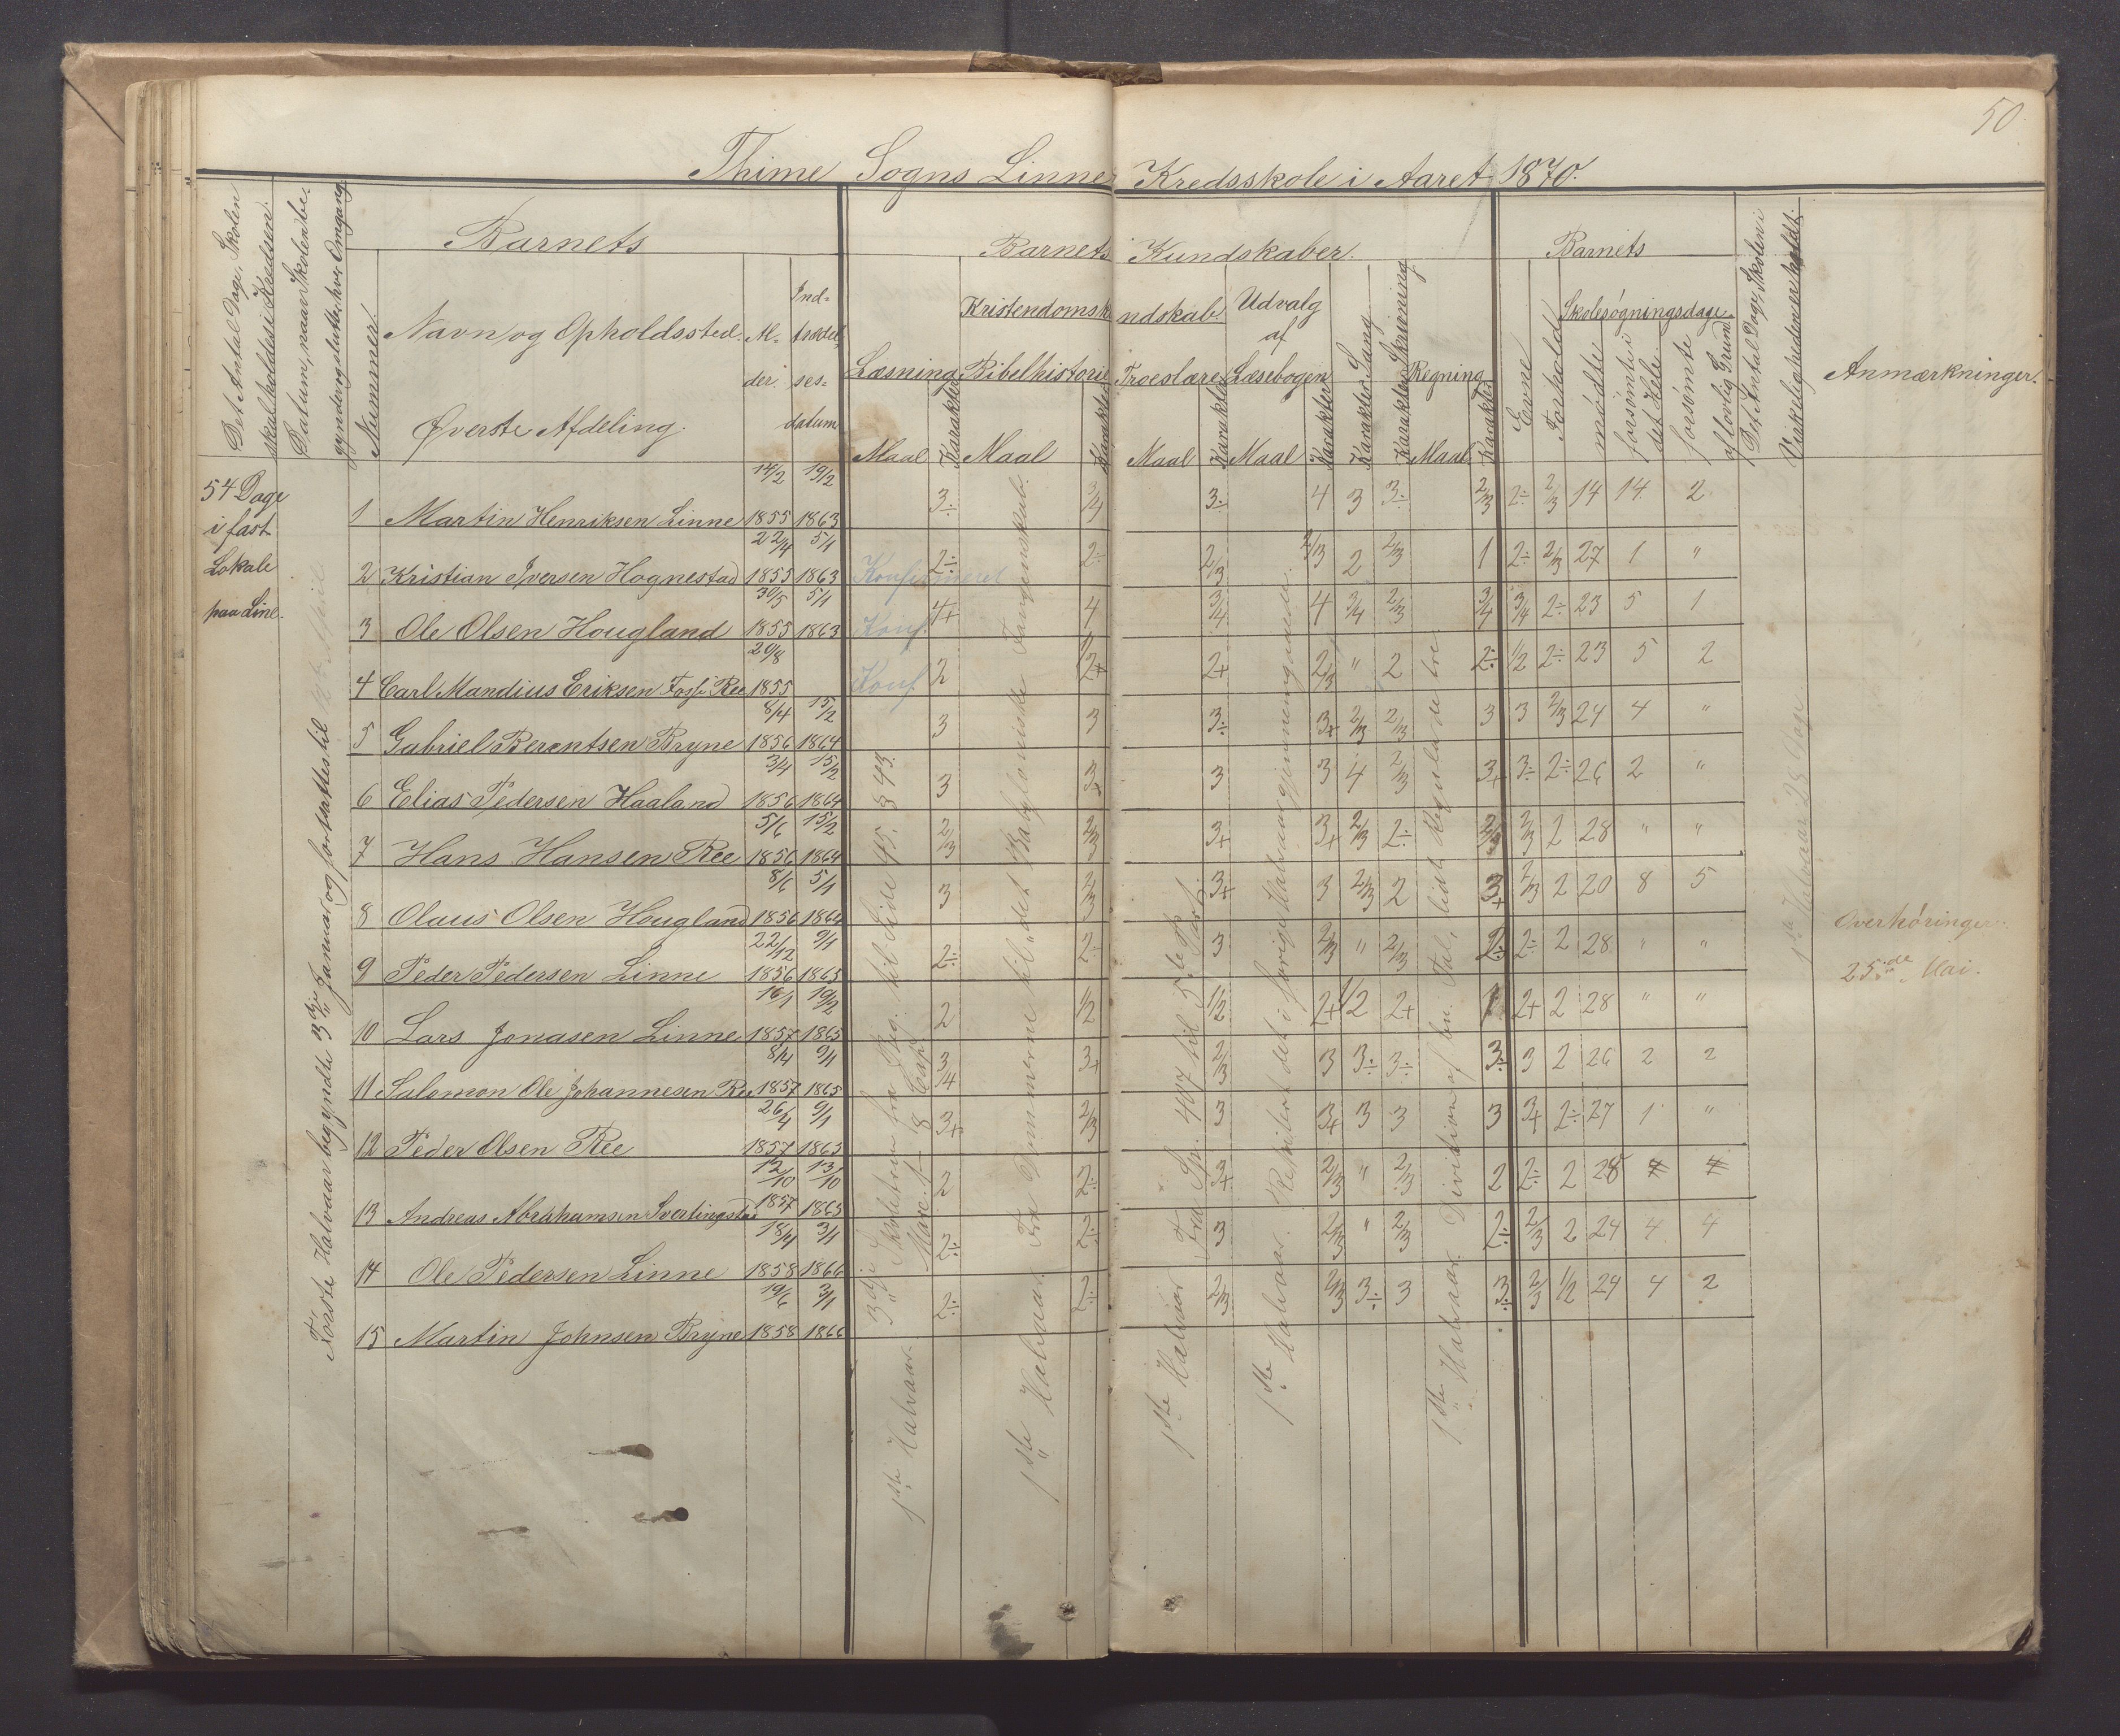 50
Thime Sogns Linne Kredsskole i Aaret 1870.
Det Antal Dage, Skolen skal holdes i Kredsen.
Datum, naar Skolen begynder og slutter hver Omgang
Nummer
Barnets
Navn og Opholdssted.
Øverste Afdeling.
Al-
der.
Ind-
trædel-
ses-
datum
Barnets Kundskaber.
Læsning
Maal
Karakter
Kristendomskundskab.
Bibelhistorie
Maal
Karakter
Troeslære
Maal
Karakter
Udvalg
af
Læsebogen
Maal
Karakter
Karakter Sang
Karakter Skrivning
Regning
Maal
Karakter
Barnets
Evne
Forhold
Skolesøgningsdage
mødte
forsømte i det Hele.
forsømte af lovlig Grund
Det Antal Dage, Skolen i Virkeligheden er holdt.
Anmærkninger.
54 Dage
i fast
Lokale
paa Line.
Første Halvaar begyndte 3die Januar og fortsattes til
1 Martin Henriksen Linne 14/2 1855 19/2 1863 3÷ 3/4 3÷ 4 3 3÷ 2/3 2÷ 2/3 14 14 2
2 Kristian Iversen Hognestad 22/4 1855 5/1 1863 Konfirmeret 2÷ 2÷ 2/3 2/3 2 2/3 1 2÷ 2/3 27 1 "
3 Ole Olsen Hougland 30/5 1855 5/1 1863 Konf. 4+ 4 3/4 4 3/4 2/3 3/4 3/4 2÷ 23 5 1
4 Carl Mandius Eriksen Fosse Ree 20/8 1855 Konf. 2 2+ 2+ 2/3 " 2 2÷ 1/2 2÷ 23 5 2
5 Gabriel Berentsen Bryne 8/4 1856 15/2 1864 3 3 3÷ 3+ 2/3 2/3 3 3 2/3 24 4 "
6 Elias Pedersen Haaland 3/4 1856 15/2 1864 3 3+ 3 3 4 2/3 3+ 3÷ 2÷ 26 2 "
7 Hans Hansen Ree 5/6 1856 15/2 1864 2/3 2/3 3+ 3+ 2/3 2÷ 2/3 2/3 2 28 " "
8 Olaus Olsen Hougland 8/6 1856 5/1 1864 3 2/3 3+ 3 2/3 2 3+ 2/3 2 20 8 5
9 Peder Pedersen Linne 22/12 1856 9/1 1865 2÷ 2÷ 3 2/3 " 2/3 2÷ 2÷ 2 28 " "
10 Lars Jonasen Linne 16/1 1857 19/2 1865 2 1/2 1/2 2+ 1/2 2+ 1 2+ 2 28 " "
11 Salomon Ole Johannesen Ree 8/4 1857 9/1 1865 3/4 3+ 2/3 3 3÷ 3÷ 3÷ 3 2 26 2 2
12 Peder Olsen Ree 26/4 1857 9/1 1865 3+ 2/3 3 3+ 3 3 3 3+ 2÷ 27 1 "
13 Andreas Abrahamsen Svertingstad 12/10 1857 13/10 1865 2 2÷ 3+ 2/3 " 2/3 2 2÷ 2 28
14 Ole Pedersen Linne 18/4 1858 3/1 1866 2÷ 2÷ 3 2/3 " 2/3 2÷ 2/3 2 24 4 4
15 Martin Johnsen Bryne 19/6 1858 3/1 1866 2÷ 2÷ 2/3 2/3 3÷ 3 3÷ 2/3 1/2 24 4 2
1ste Halvaar. 3die Skoletrin fra Beg. til Side 95. § 43.
Marc. 1 - 8 Cap.
1ste Halvaar. Fra Dommerne til "det Babyloniske Fangenskab.
1ste Halvaar Fra Sp. 407 til 5te Part.
1ste Halvaar. Repetition det i forrige Halvaar gjennemgaaede.
1ste Halvaar. Division af ben. Tal, lidt Reguladetri.
1ste Halvaar 28 Dage
Overhøringer
25de Mai.